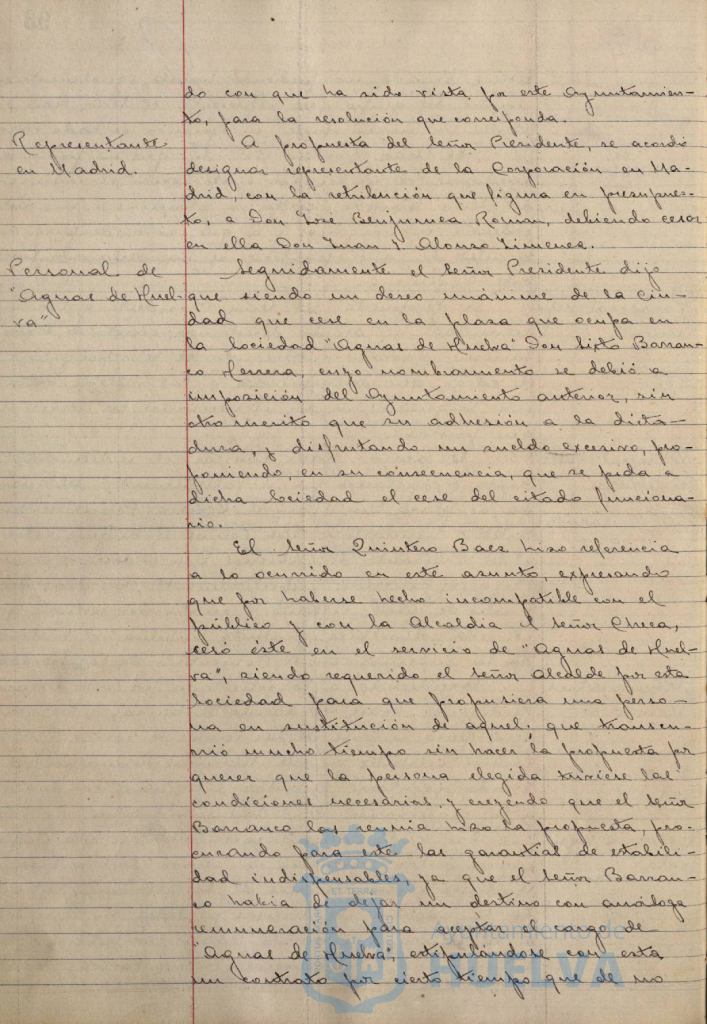 do con que ha sido vista por este Ayuntamien-
to, para la resolución que corresponda.
Representante
en Madrid.
A propuesta del Señor Presidente, se acordó
designar representante de la Corporación en Ma-
drid, con la retribución que figura en presupues-
to, a Don José Benjumea Roman, debiendo cesar
en ella Don Juan J. Alonso Jimenez.
Personal de
"Aguas de Huel-
va"
Seguidamente el Señor Presidente dijo
que siendo un deseo unánime de la ciu-
dad que cese en la plaza que ocupa en
la Sociedad "Aguas de Huelva" Don Sixto Barran-
co Herrera, cuyo nombramiento se debió a
imposición del Ayuntamiento anterior, sin
otro merito que su adhesión a la dicta-
dura, y disfrutando un sueldo excesivo, pro-
poniendo, en su consecuencia, que se pida a
dicha Sociedad el cese del citado funciona-
rio.
El Señor Quintero Baez hizo referencia
a lo ocurrido en este asunto, expresando
que por haberse hecho incompatible con el
público y con la Alcaldia el Señor Checa,
cesó éste en el servicio de "Aguas de Huel-
va", siendo requerido el Señor Alcalde por esta
Sociedad para que propusiera una perso-
na en sustitución de aquel; que transcu-
rrió mucho tiempo sin hacer la propuesta por
querer que la persona elegida tuviese las
condiciones necesarias, y creyendo que el Señor
Barranco las reunia hizo la propuesta, pro-
curando para este las garantias de estabili-
dad indispensables, ya que el Señor Barran-
co habia de dejar un destino con análoga
remuneración para aceptar el cargo de
"Aguas de Huelva", estipulándose con esta
un contrato por cierto tiempo que de no
Ayuntamiento de
HUELVA